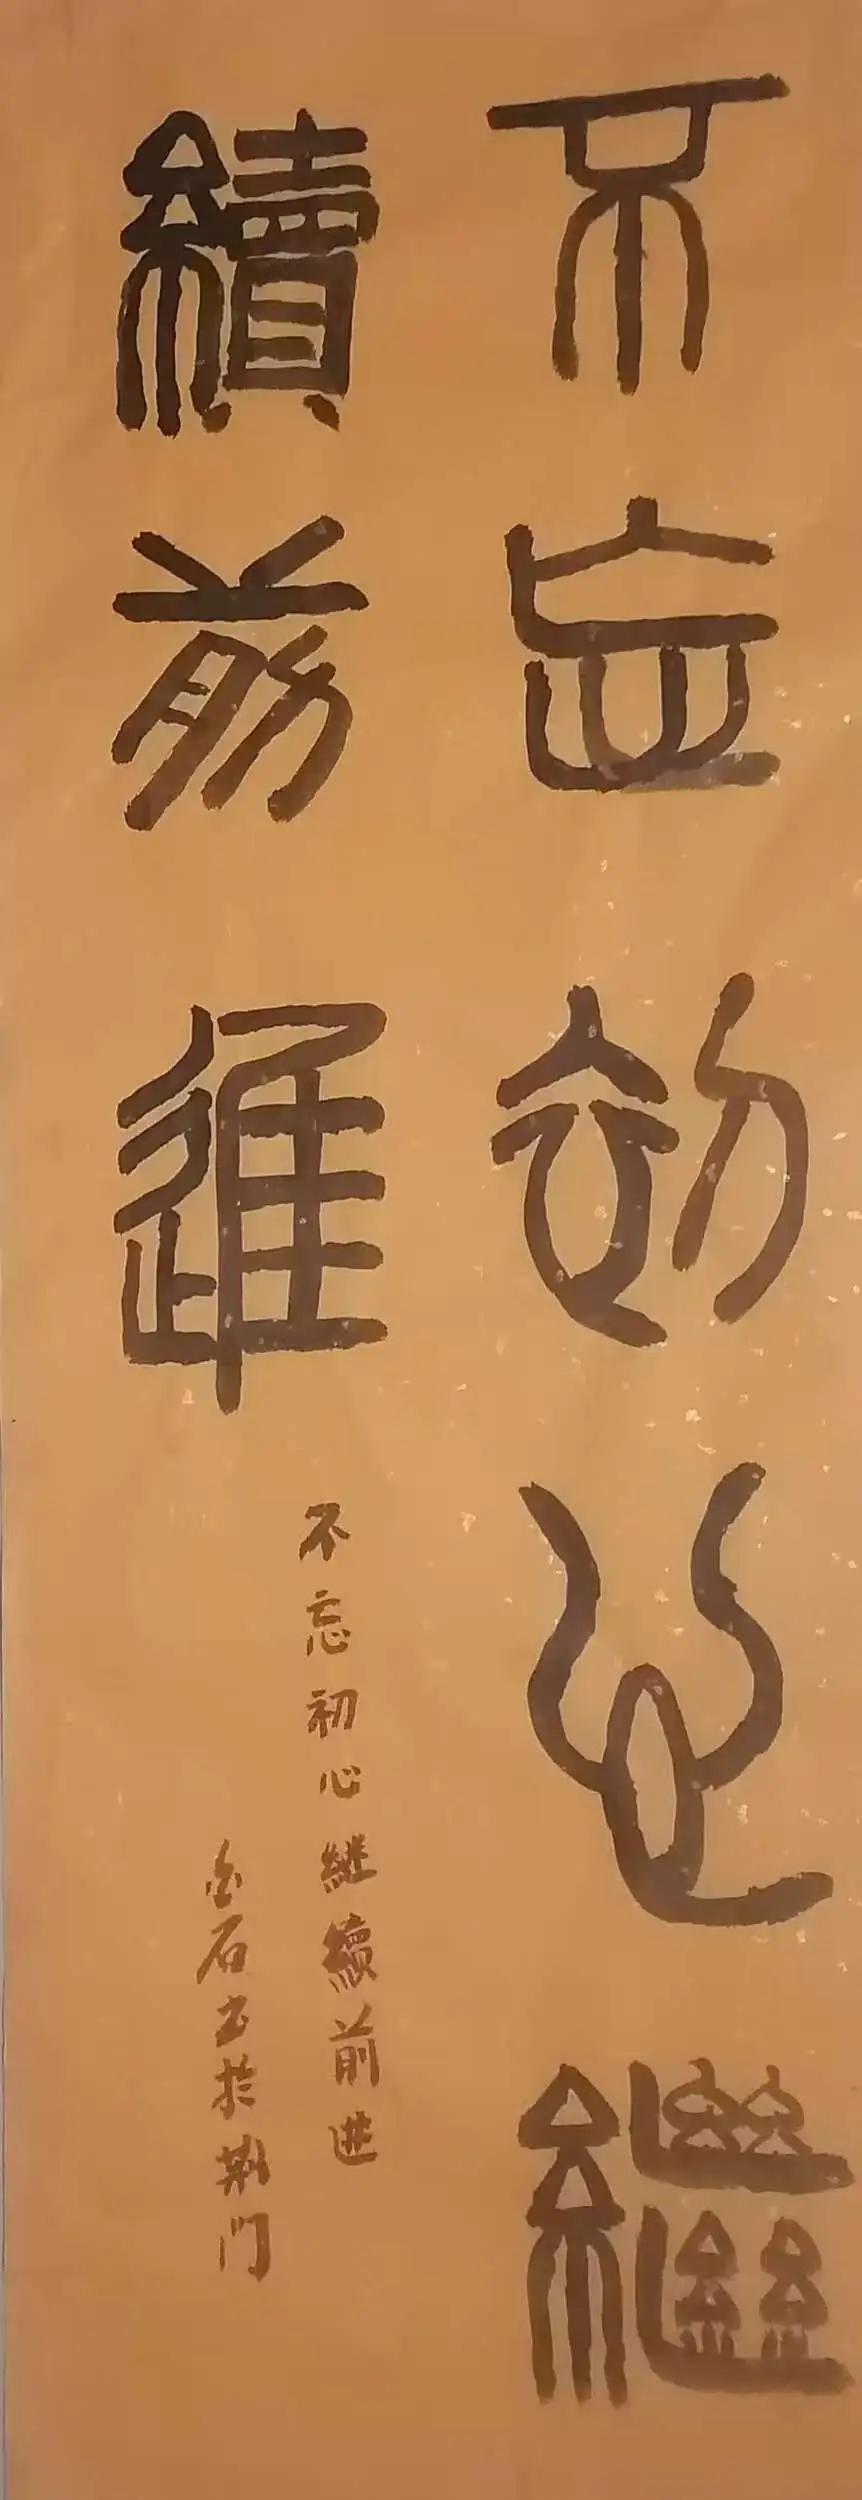 不忘初心繼
續前進
不忘初心继續前进
金石书於荆门